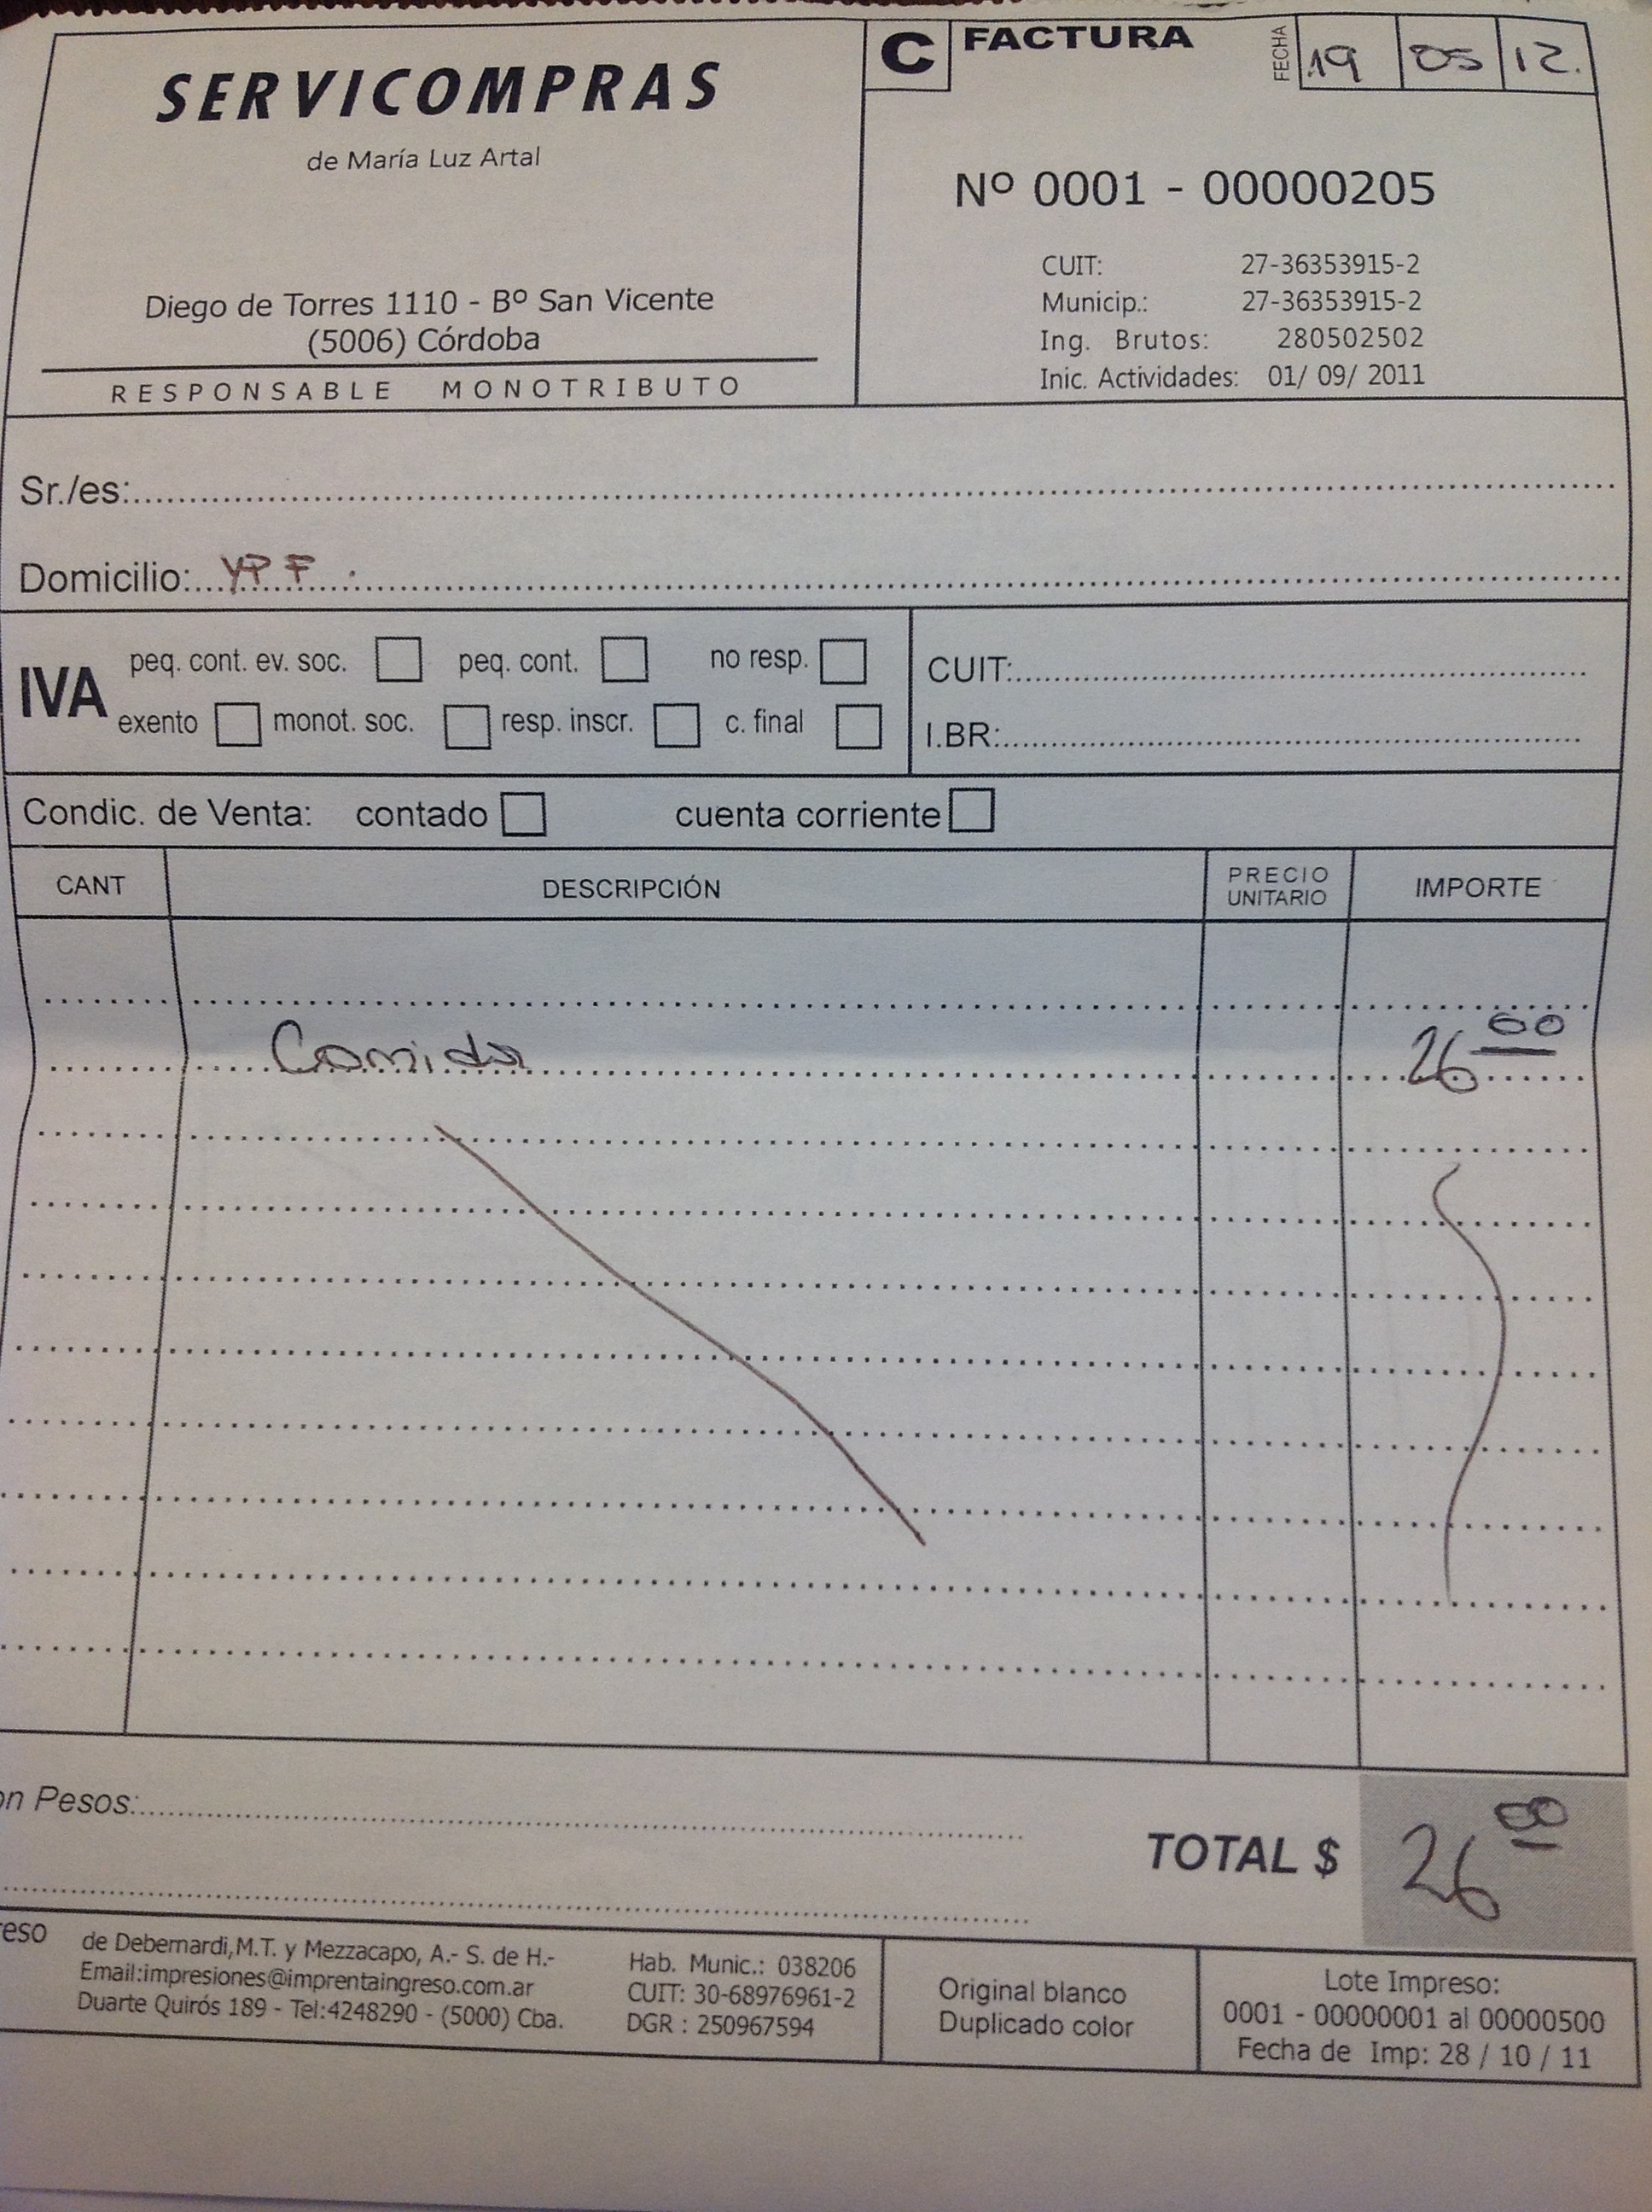 SERVICOMPRAS
de María Luz Artal
Diego de Torres 1110 - Bº San Vicente
(5006) Córdoba
RESPONSABLE MONOTRIBUTO
C FACTURA
FECHA 19 05 12.
Nº 0001 - 00000205
CUIT: 27-36353915-2
Municip.: 27-36353915-2
Ing. Brutos: 280502502
Inic. Actividades: 01/ 09/ 2011
Sr./es:
Domicilio: YPF.
IVA
peq. cont. ev. soc. peq. cont. no resp.
exento monot. soc. resp. inscr. c. final
CUIT:
I.BR:
Condic. de Venta: contado cuenta corriente
CANT DESCRIPCIÓN PRECIO UNITARIO IMPORTE
Comida 26 00
on Pesos:
TOTAL $ 26 00
reso de Debernardi,M.T. y Mezzacapo, A.- S. de H.-
Email:impresiones@imprentaingreso.com.ar
Duarte Quirós 189 - Tel:4248290 - (5000) Cba.
Hab. Munic.: 038206
CUIT: 30-68976961-2
DGR : 250967594
Original blanco
Duplicado color
Lote Impreso:
0001 - 00000001 al 00000500
Fecha de Imp: 28 / 10 / 11